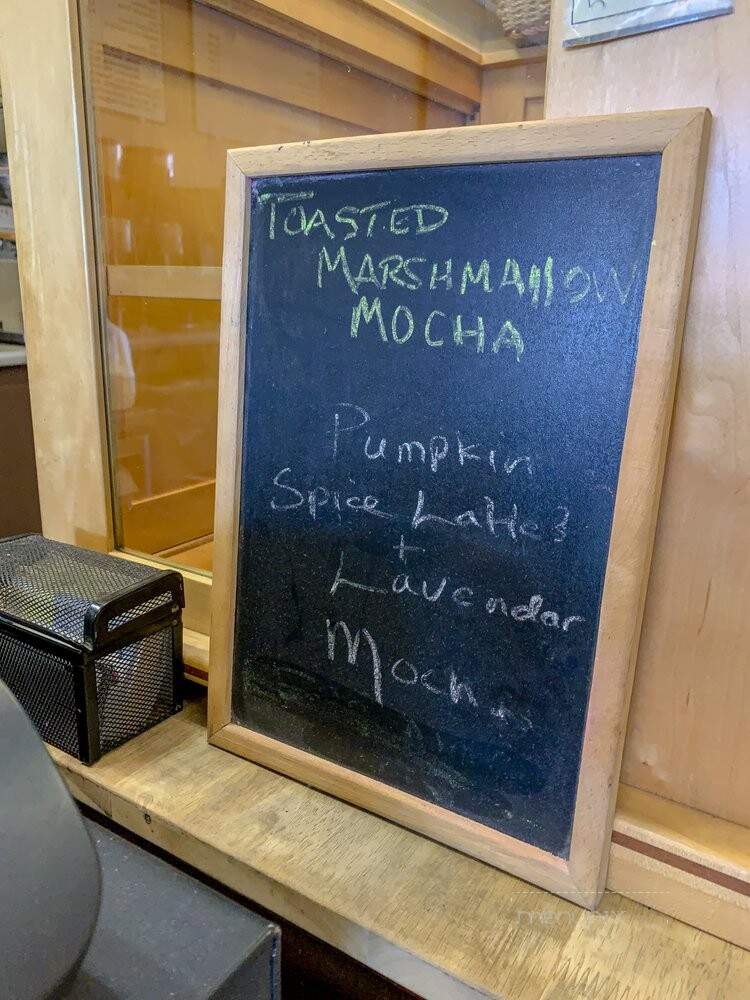 TOASTED
MARSHMALLOW
MOCHA
Pumpkin
Spice Lattes
+
Lavendar
Mochas
menupix